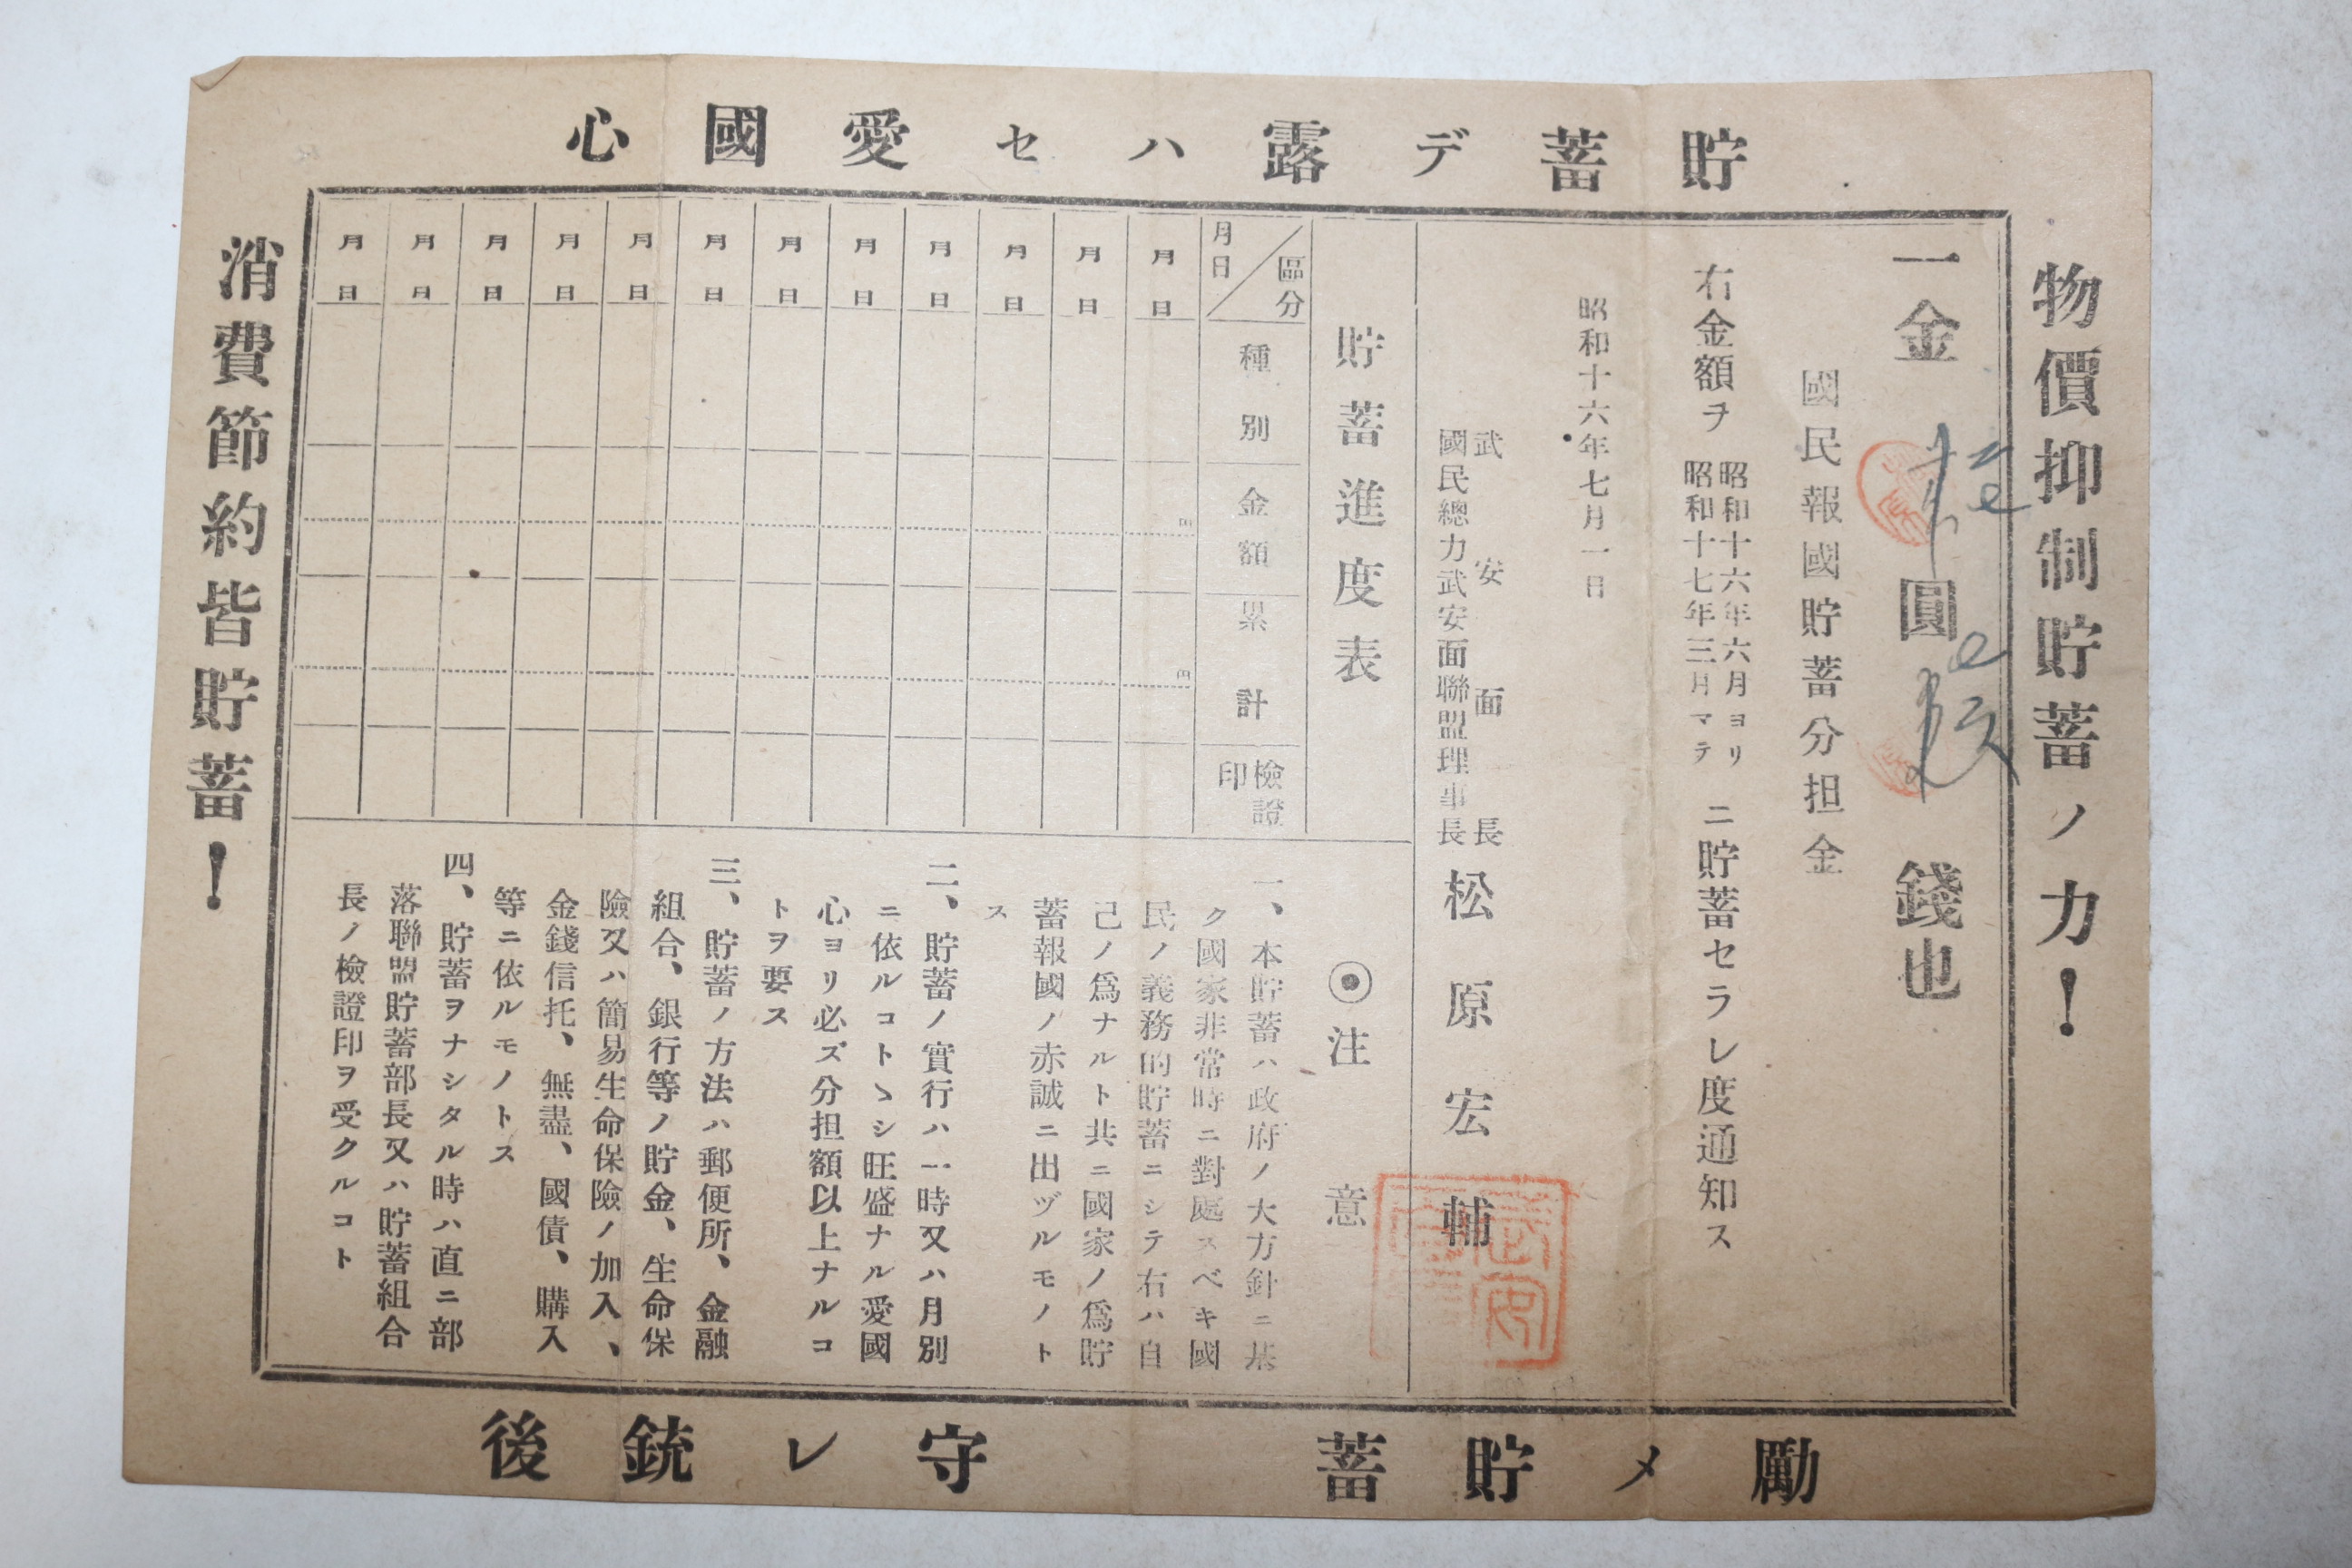 貯蓄デ露ハセ愛國心
物價抑制貯蓄ノ力！
一金　圓　錢也
國民報國貯蓄分担金
右金額ヲ 昭和十六年六月ヨリ
昭和十七年三月マテ ニ貯蓄セラレ度通知ス
昭和十六年七月一日
武安面長
國民總力武安面聯盟理事長 松原宏輔
貯蓄進度表
區分
月日
種別
金額
累計
檢證印
月日
円
円
月日
月日
月日
月日
月日
月日
月日
月日
月日
月日
月日
◉注意
一、本貯蓄ハ政府ノ大方針ニ基
ク國家非常時ニ對處スベキ國
民ノ義務的貯蓄ニシテ右ハ自
己ノ爲ナルト共ニ國家ノ爲貯
蓄報國ノ赤誠ニ出ヅルモノト
ス
二、貯蓄ノ實行ハ一時又ハ月別
ニ依ルコトヽシ旺盛ナル愛國
心ヨリ必ズ分担額以上ナルコ
トヲ要ス
三、貯蓄ノ方法ハ郵便所、金融
組合、銀行等ノ貯金、生命保
險又ハ簡易生命保險ノ加入、
金錢信托、無盡、國債、購入
等ニ依ルモノトス
四、貯蓄ヲナシタル時ハ直ニ部
落聯盟貯蓄部長又ハ貯蓄組合
長ノ檢證印ヲ受クルコト
消費節約皆貯蓄！
勵メ貯蓄　守レ銃後